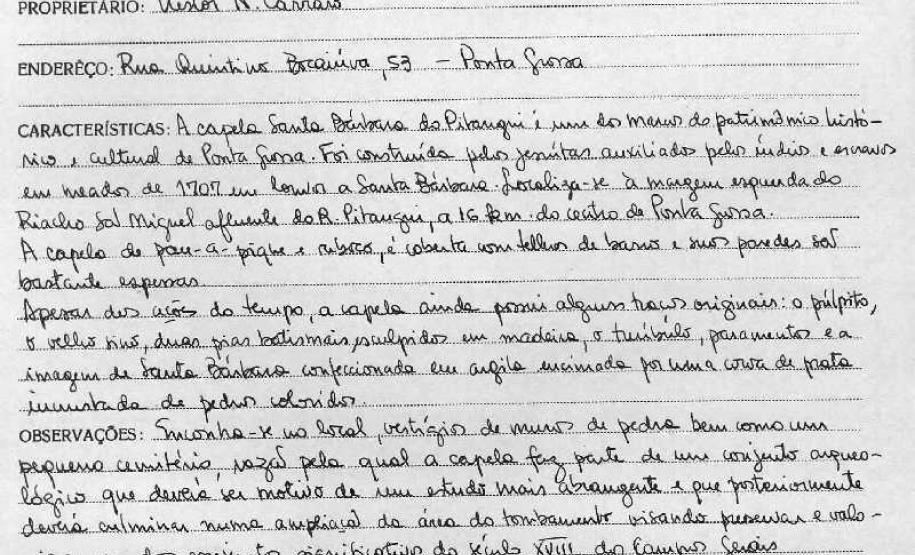 PROPRIETÁRIO: Nestor N. Carraro
ENDERÊÇO: Rua Quintino Bocaiúva, 53 - Ponta Grossa
CARACTERÍSTICAS: A capela Santa Bárbara do Pitangui é um dos marcos do patrimônio histó-
rico e cultural de Ponta Grossa. Foi construída pelos jesuítas auxiliados pelos índios e escravos
em meados de 1707 em louvor a Santa Bárbara. Localiza-se à margem esquerda do
Riacho São Miguel afluente do R. Pitangui, a 16 km. do centro de Ponta Grossa.
A capela de pau-a-pique e rústica, é coberta com telhas de barro e suas paredes são
bastante espessas
Apesar das ações do tempo, a capela ainda possui alguns traços originais: o púlpito,
o velho sino, duas pias batismais, esculpidas em madeira, o turíbulo, paramentos e a
imagem de Santa Bárbara confeccionada em argila encimada por uma coroa de prata
incrustada de pedras coloridas.
OBSERVAÇÕES: Encontra-se no local, vestígios de muros de pedra bem como um
pequeno cemitério, razão pela qual a capela faz parte de um conjunto arqueo-
lógico que deveria ser motivo de um estudo mais abrangente e que posteriormente
deveria culminar numa ampliação da área do tombamento visando preservar e valo-
significativo do século XVIII dos Campos Gerais